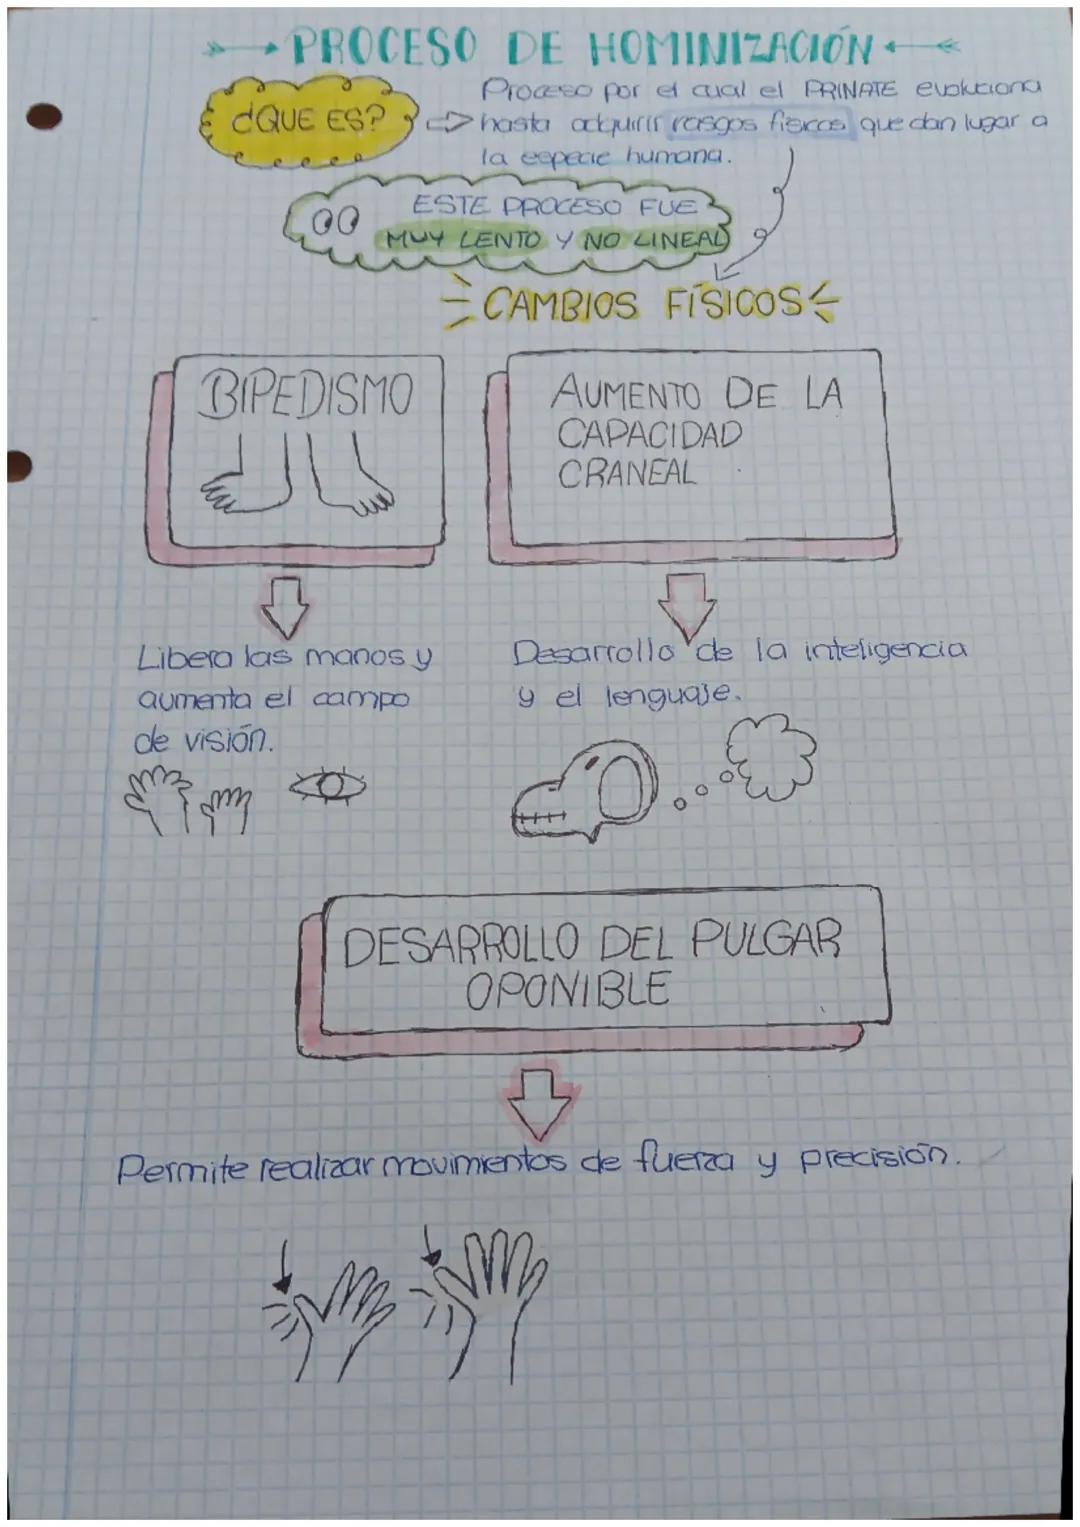 PROCESO DE HOMINIZACIÓN
¿QUE ES?
Proceso por el cual el PRINATE evoluciona
hasta adquirir rasgos físicos que dan lugar a
la especie humana.
ESTE PROCESO FUE
MUY LENTO Y NO LINEAL
CAMBIOS FÍSICOS
BIPEDISMO
AUMENTO DE LA
CAPACIDAD
CRANEAL
Libera las manos y
aumenta el campo
de visión.
Desarrollo de la inteligencia
y el lenguaje.
DESARROLLO DEL PULGAR
OPONIBLE
Permite realizar movimientos de fuerza y precisión.